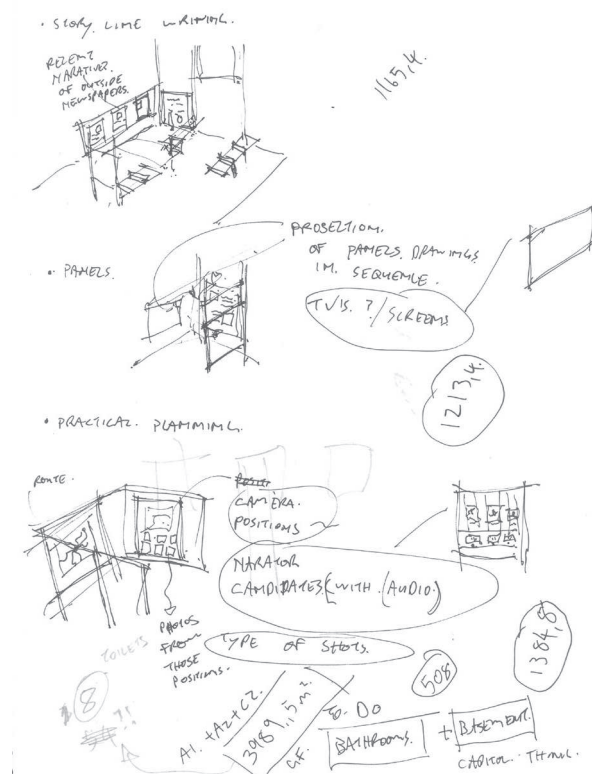 • STORY LINE WRITING.
RECENT
NARATIVES.
OF OUTSIDE
NEWSPAPERS.
1165,4.
PROSECTION.
OF PANELS. DRAWINGS
IN SEQUENCE.
• PANELS.
TV'S. ?/SCREENS
1213,4.
• PRACTICAL PLANNING.
ROUTE.
CAMERA.
POSITIONS
NARATOR
CANDIDATES (WITH (AUDIO.)
PHOTOS
FROM
THOSE
POSITIONS.
TYPE OF SHOTS.
TOILETS
8
!!
1384,8
508
A1. +A2+C2.
3989,15 m².
G.F.
TO. DO
BATHROOMS. + BASEMENT.